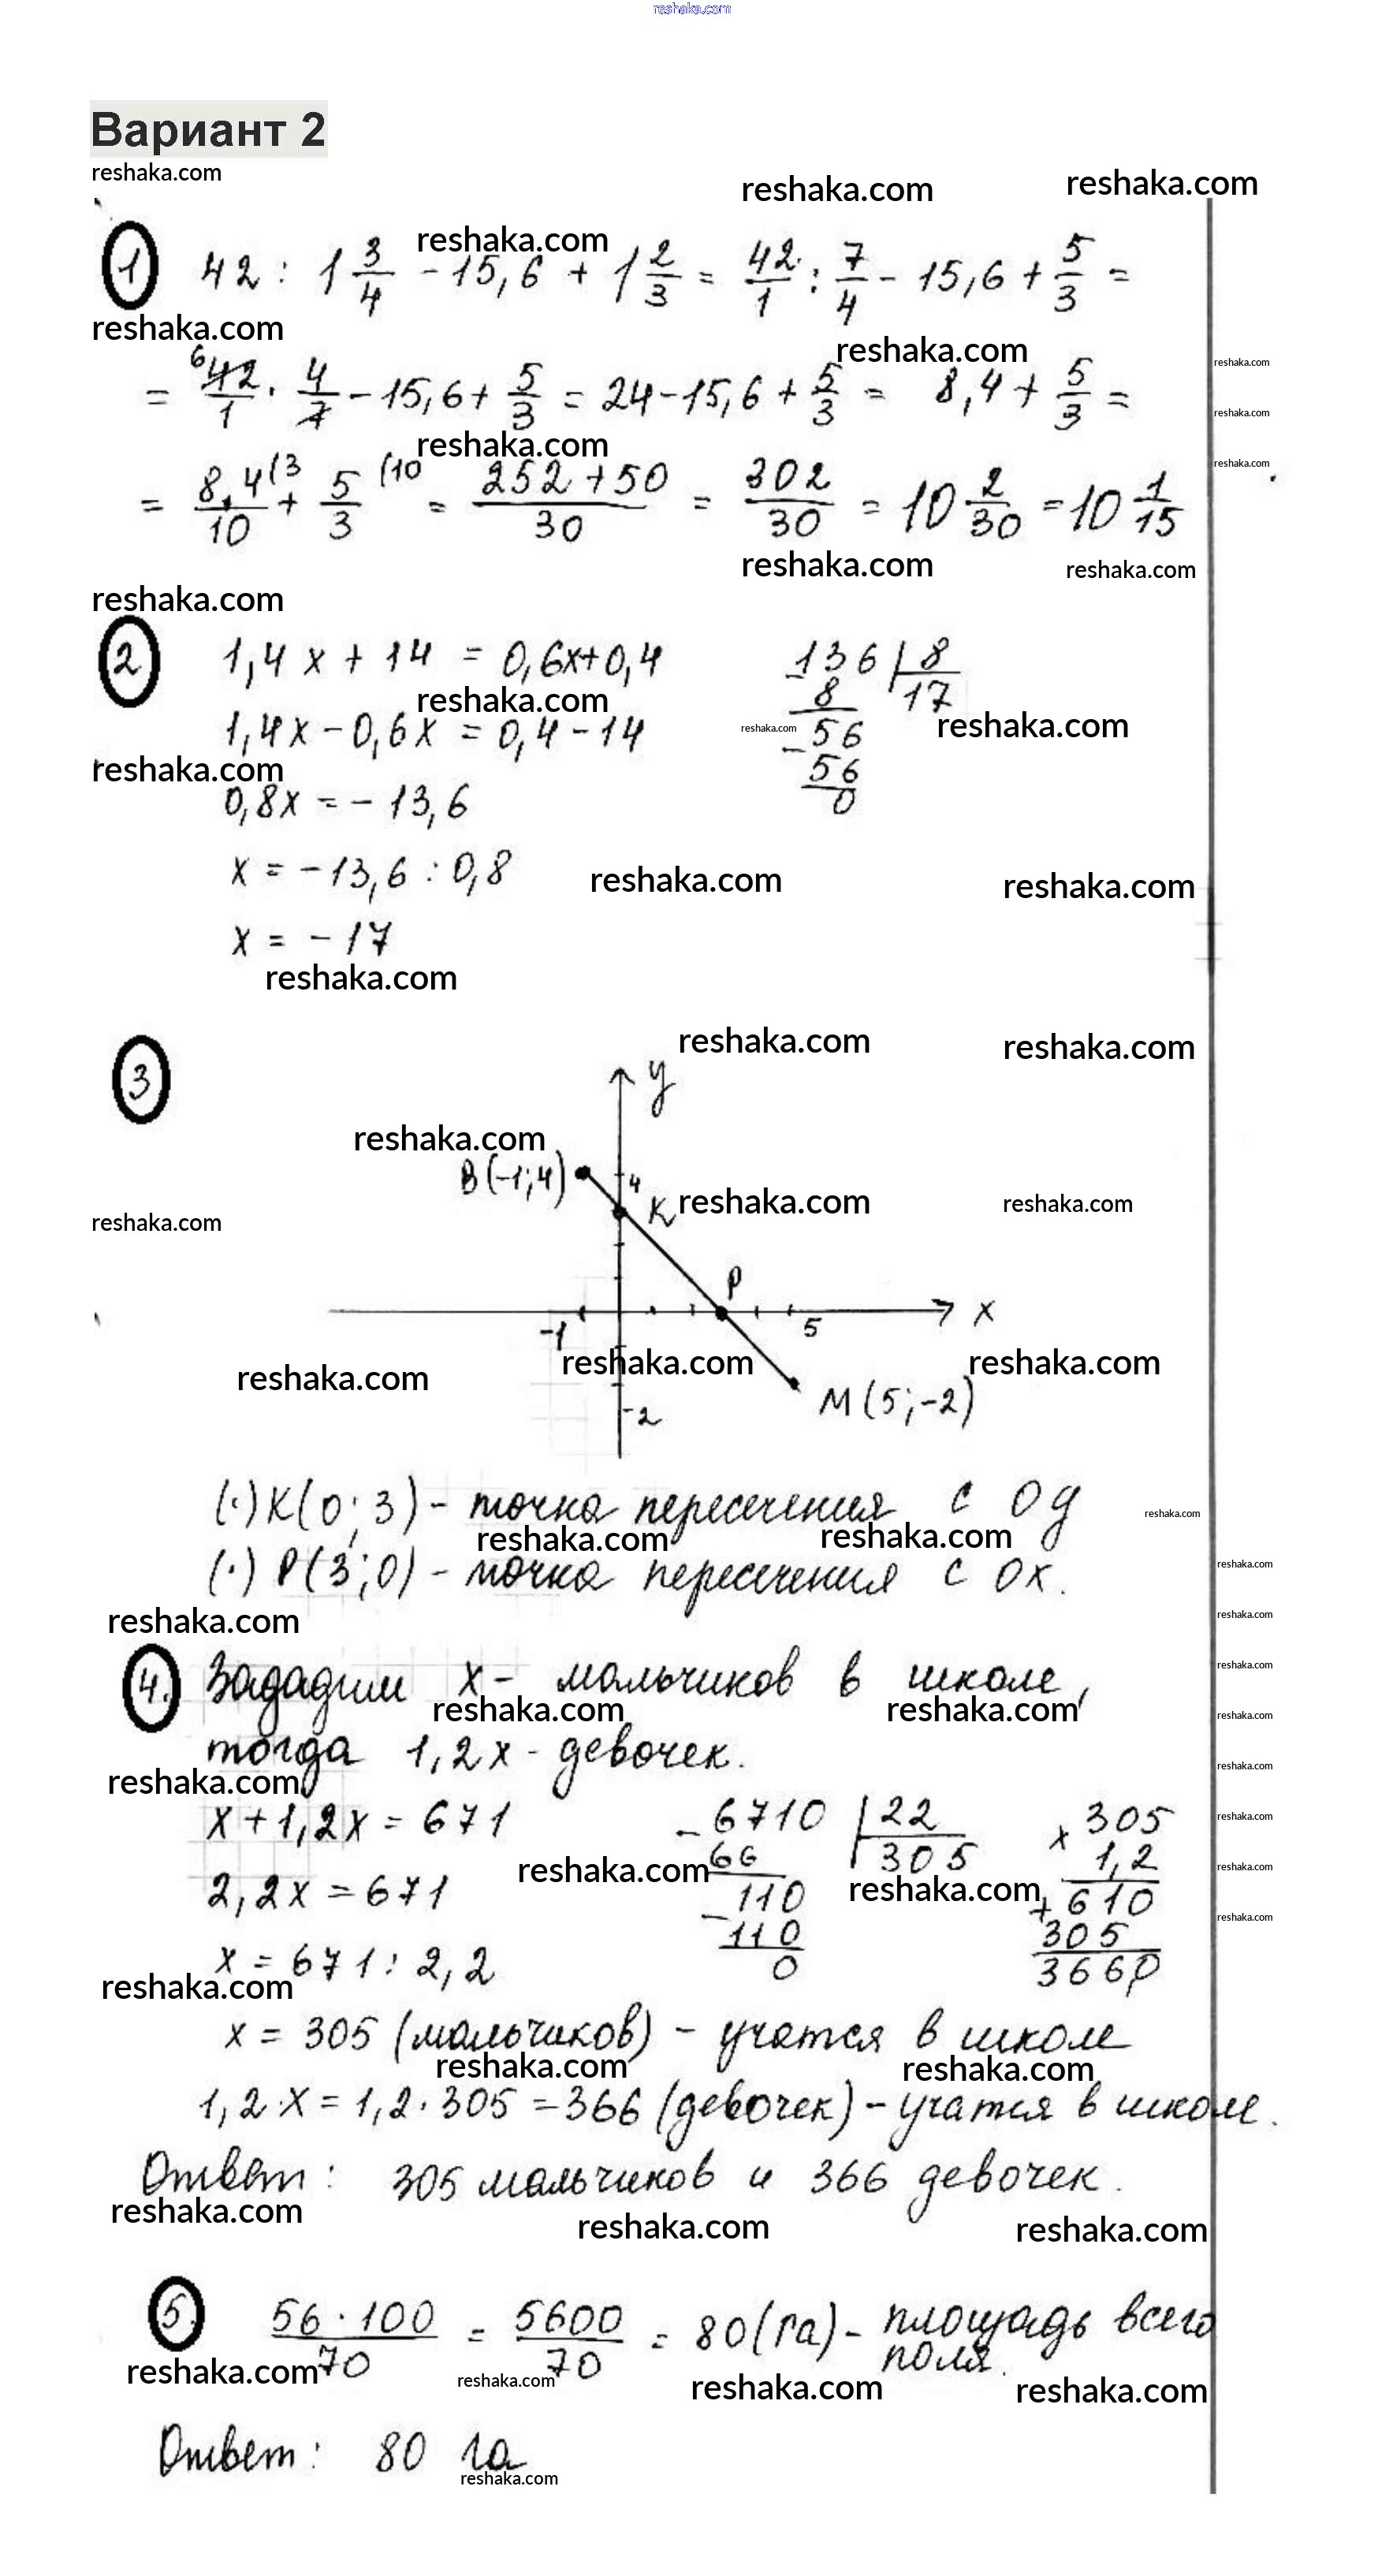 reshaka.com
Вариант 2
reshaka.com
reshaka.com reshaka.com
reshaka.com
1 42 : 1 3/4 - 15,6 + 1 2/3 = 42/1 : 7/4 - 15,6 + 5/3 =
reshaka.com
reshaka.com
reshaka.com
= 6 42/1 · 4/7 - 15,6 + 5/3 = 24 - 15,6 + 5/3 = 8,4 + 5/3 =
reshaka.com
reshaka.com
reshaka.com
= 8,4(3/10 + 5/3 (10 = 252+50/30 = 302/30 = 10 2/30 = 10 1/15
reshaka.com reshaka.com
reshaka.com
2 1,4x + 14 = 0,6x+0,4 - 136 | 8
reshaka.com 8 17
1,4x - 0,6x = 0,4 - 14 reshaka.com - 56 reshaka.com
reshaka.com 56
0,8x = - 13,6 0
x = -13,6 : 0,8 reshaka.com reshaka.com
x = - 17
reshaka.com
reshaka.com reshaka.com
3
y
reshaka.com
B(-1;4) 4
K reshaka.com reshaka.com
reshaka.com
P
x
-1 5
reshaka.com reshaka.com reshaka.com
M(5;-2)
-2
(·)K(0;3) - точка пересечения с Оy
reshaka.com reshaka.com reshaka.com
(·) P(3;0) - точка пересечения с Ох.
reshaka.com
reshaka.com
reshaka.com
4. Зададим x - мальчиков в школе,
reshaka.com
reshaka.com reshaka.com
reshaka.com
тогда 1,2x - девочек.
reshaka.com
reshaka.com
x + 1,2x = 671 - 6710 | 22 × 305
reshaka.com
reshaka.com 66 305 1,2
reshaka.com
2,2x = 671 110 reshaka.com + 610
reshaka.com
- 110 305
x = 671 : 2,2 0 3660
reshaka.com
x = 305 (мальчиков) - учатся в школе
reshaka.com reshaka.com
1,2·x = 1,2·305 = 366 (девочек) - учатся в школе.
Ответ: 305 мальчиков и 366 девочек.
reshaka.com reshaka.com reshaka.com
5. 56·100/70 = 5600/70 = 80(га) - площадь всего
поля.
reshaka.com reshaka.com reshaka.com reshaka.com
Ответ: 80 га
reshaka.com